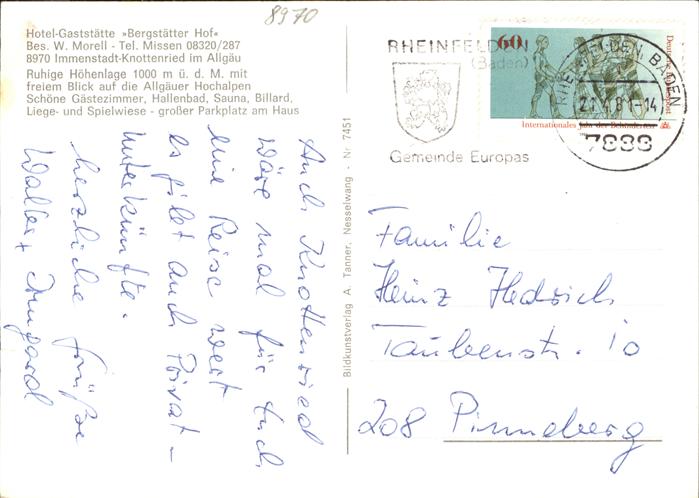 8970
Hotel-Gaststätte »Bergstätter Hof«
Bes. W. Morell - Tel. Missen 08320/287
8970 Immenstadt-Knottenried im Allgäu
Ruhige Höhenlage 1000 m ü. d. M. mit
freiem Blick auf die Allgäuer Hochalpen
Schöne Gästezimmer, Hallenbad, Sauna, Billard,
Liege- und Spielwiese - großer Parkplatz am Haus
Auch Knottenried
wäre mal für Euch
eine Reise wert
es gibt auch Privat-
unterkünfte.
herzliche Grüße
Walter + Irmgard
Bildkunstverlag A. Tanner, Nesselwang - Nr 7451
RHEINFELDEN
(Baden)
Gemeinde Europas
60
Deutsche Bundespost
Internationales Jahr der Behinderten
RHEINFELDEN, BADEN
21.4.81-14
7888
Familie
Heinz Hedrich
Taubenstr. 10
208 Pinneberg